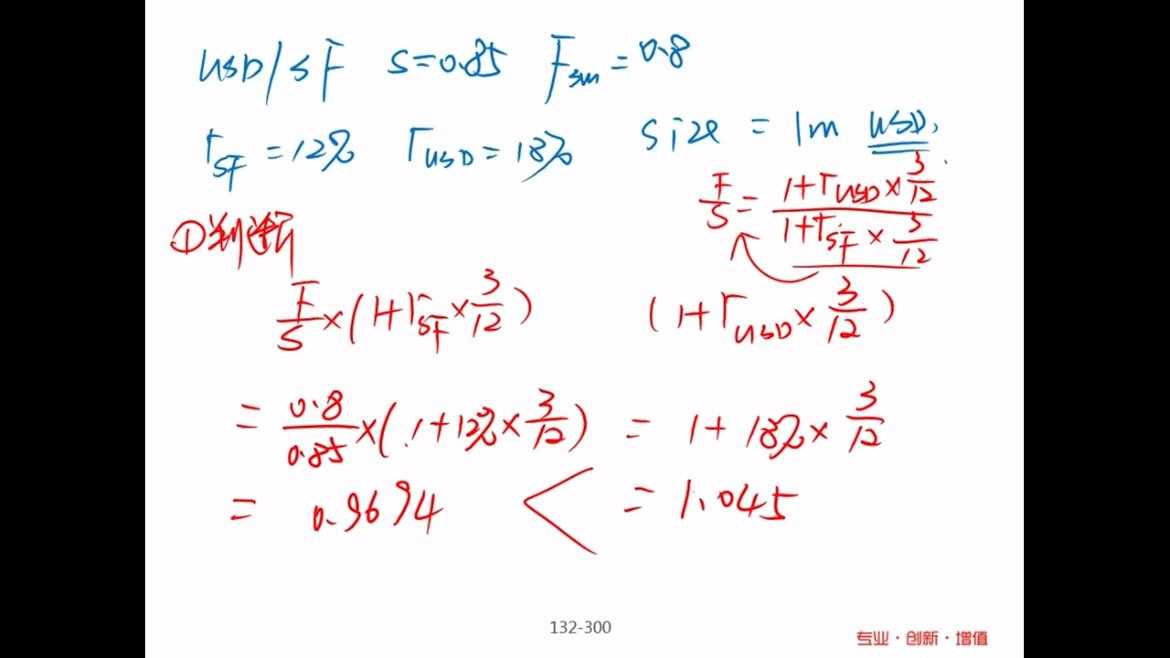 USD/SF S=0.85 F3m=0.8
rSF=12% rUSD=18% size=1m USD,
F/S=(1+rUSD×3/12)/(1+rSF×3/12)
①判断
F/S×(1+rSF×3/12) (1+rUSD×3/12)
=0.8/0.85×(1+12%×3/12) =1+18%×3/12
=0.9694 < =1.045
132-300
专业·创新·增值